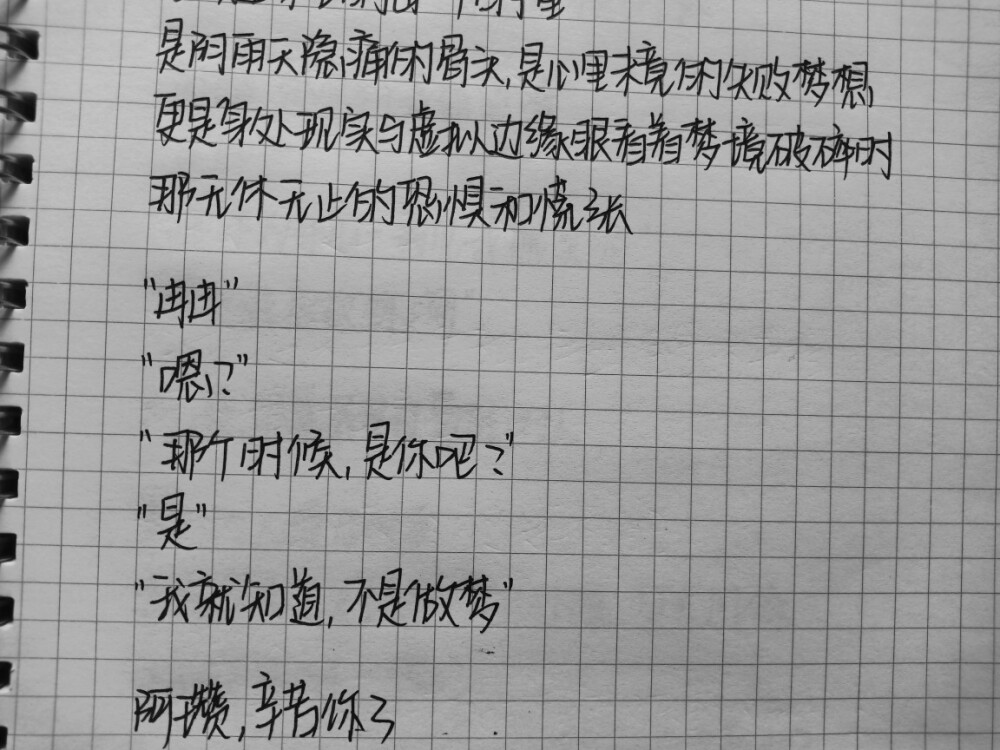 是阴雨天隐痛的骨头,是心里未竟的失败梦想
更是身处现实与虚拟边缘眼看着梦境破碎时
那无休无止的恐惧和慌张
"冉冉"
"嗯?"
"那个时候,是你吧?"
"是"
"我就知道,不是做梦"
阿瓒,辛苦你了